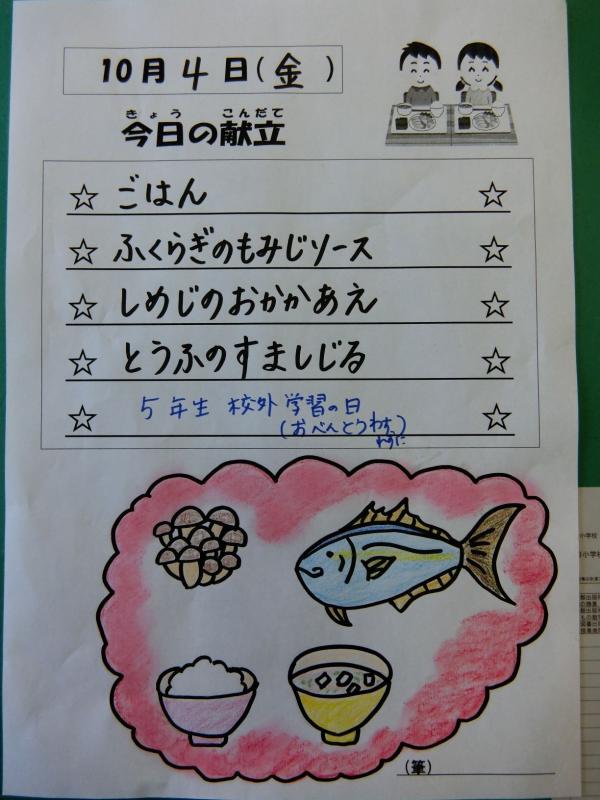 10月4日(金)
きょう こんだて
今日の献立
☆ ごはん ☆
☆ ふくらぎのもみじソース ☆
☆ しめじのおかかあえ ☆
☆ とうふのすましじる ☆
☆ 5年生 校外学習の日 ☆
(おべんとうわす)
れずに
(筆)
小学校
小学校